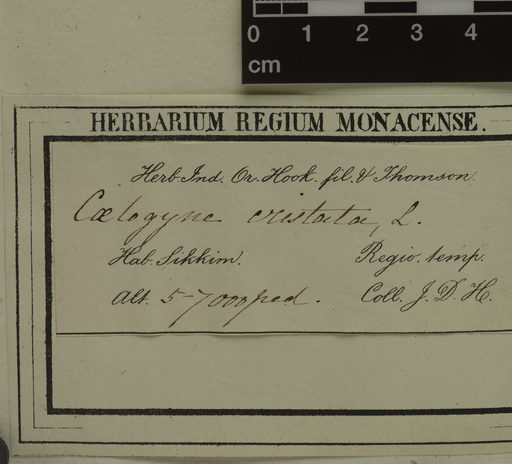 0 1 2 3 4
cm
HERBARIUM REGIUM MONACENSE.
Herb. Ind. Or. Hook. fil. & Thomson.
Cœlogyne cristata, L.
Hab. Sikkim. Regio. temp.
Alt. 5-7000 ped. Coll. J. D. H.